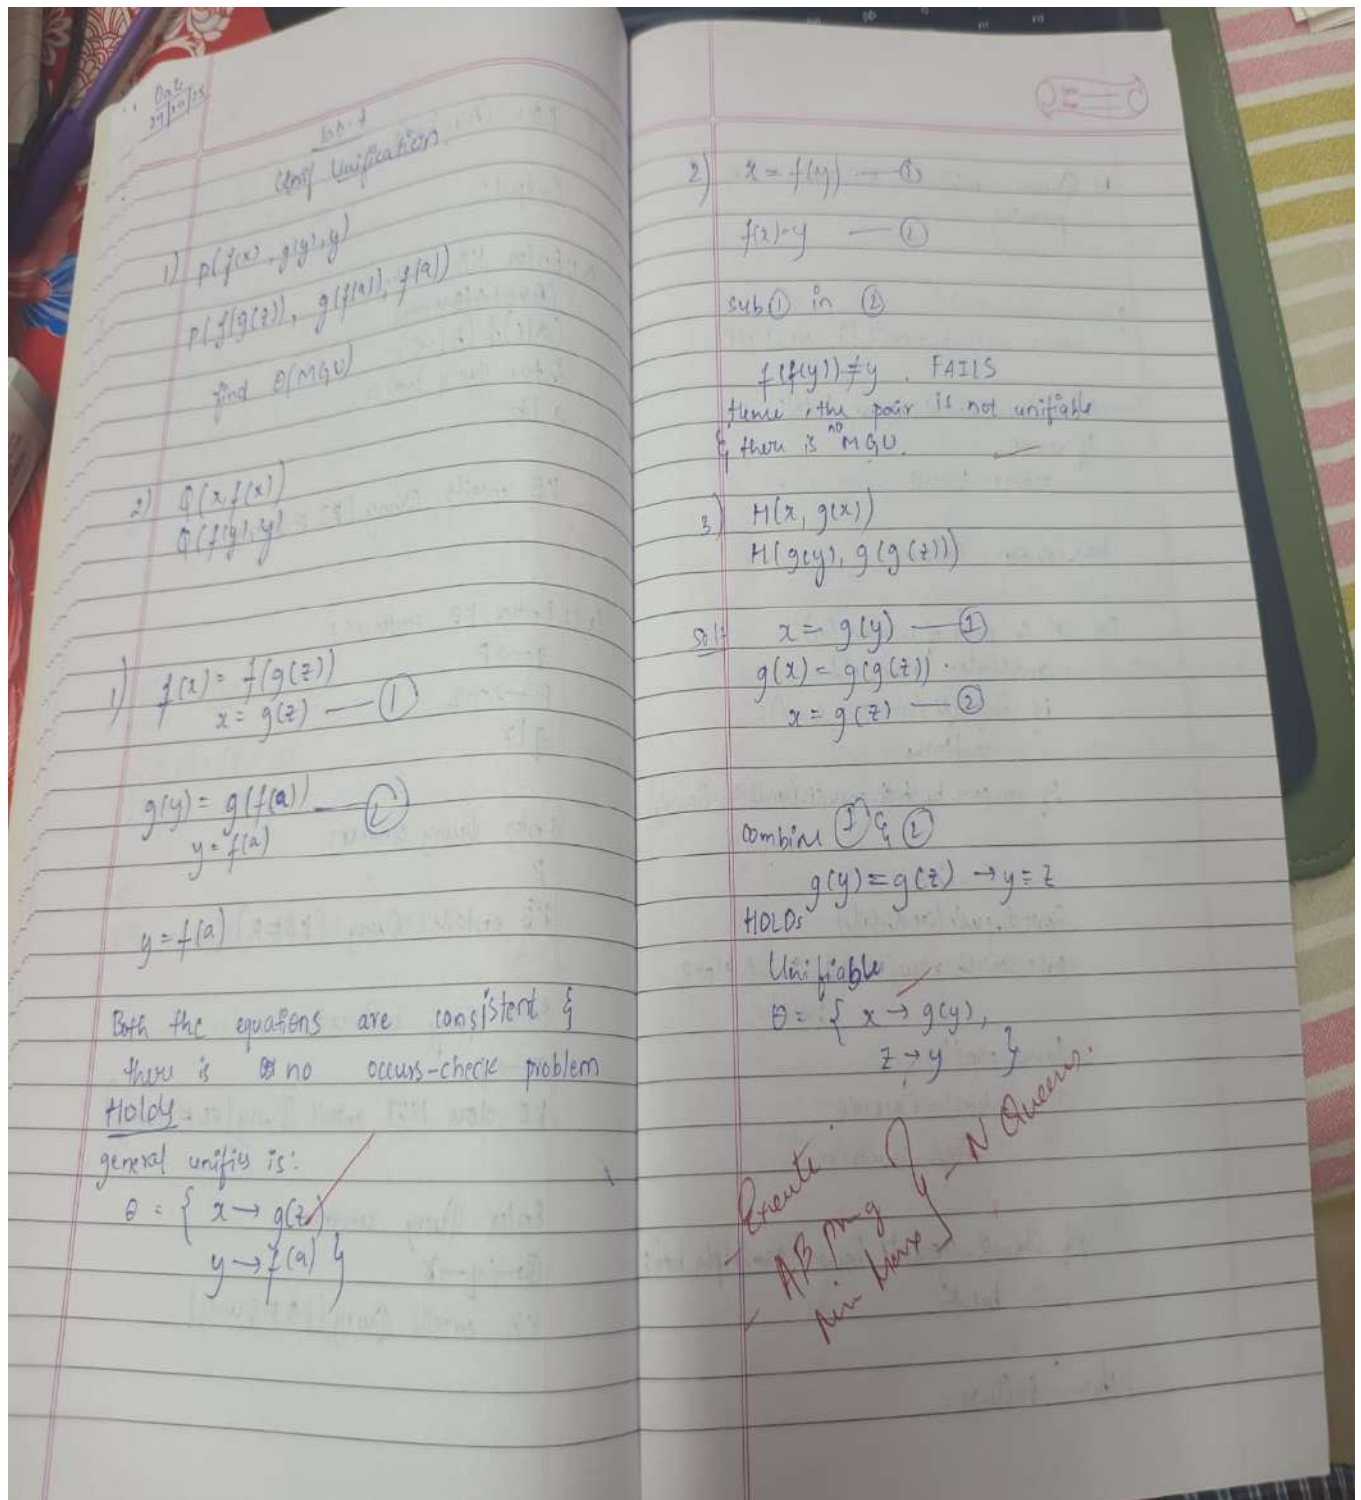 Date
Lab-
Unification
1) p(f(x), g(y), y)
p(f(g(z)), g(f(a)), f(a))
find θ(MGU)
2) Q(x, f(x))
Q(f(y), y)
1) f(x) = f(g(z))
x = g(z) — ①
g(y) = g(f(a)) — ②
y = f(a)
y = f(a)
Both the equations are consistent &
there is no occurs-check problem
Holds
general unifier is:
θ = { x → g(z)
y → f(a) }
2) x = f(y) — ①
f(x) = y — ②
sub ① in ②
f(f(y)) ≠ y. FAILS
Hence, the pair is not unifiable
& there is no MGU.
3) H(x, g(x))
H(g(y), g(g(z)))
Sol:
x = g(y) — ①
g(x) = g(g(z)).
x = g(z) — ②
combine ① & ②
g(y) = g(z) → y = z
HOLDs
Unifiable
θ = { x → g(y),
z → y }
- Execute
- AB
Min Max } - N Queens.